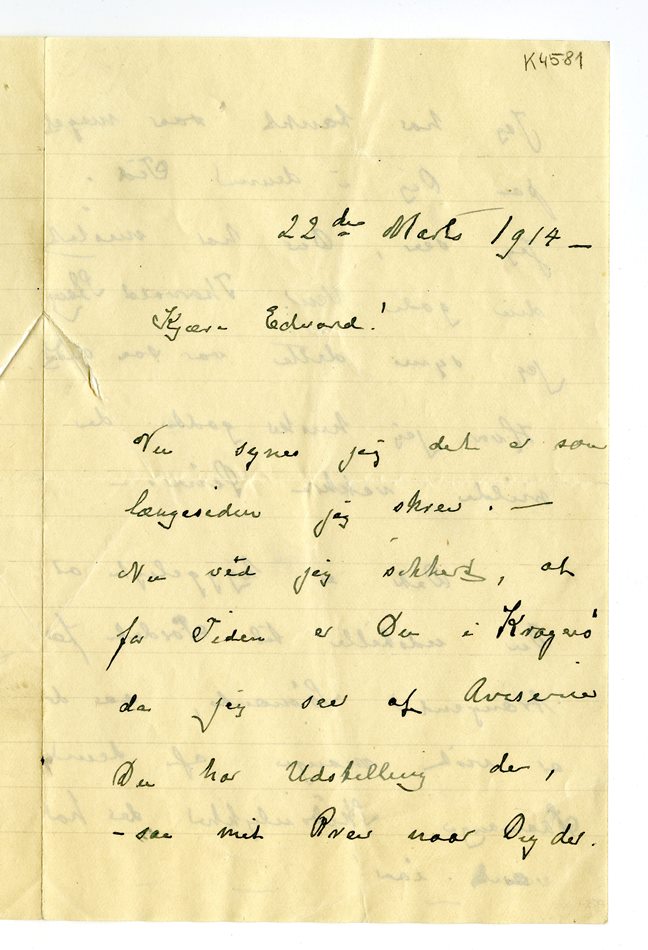 K4581
22de Marts 1914 –
Kjære Edvard!
Nu synes jeg det er saa
længesiden jeg skrev. –
Nu véd jeg sikkert, at
for Tiden er Du i Kragerø
da jeg seer af Aviserne
Du har Udstilling der,
– saa mit Brev naar Dig der.